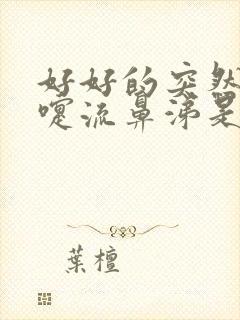 好好的突然
嚏流鼻涕是
葉檀